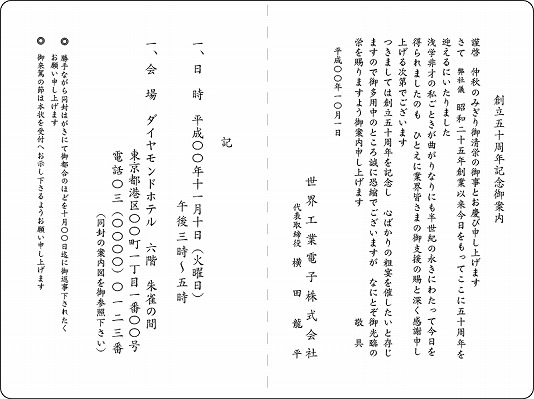 創立五十周年記念御案内
謹啓　仲秋のみぎり御清栄の御事とお慶び申し上げます
さて　弊社儀　昭和二十五年創業以来今日をもってここに五十周年を
迎えるにいたりました
浅学非才の私ごときが曲がりなりにも半世紀の永きにわたって今日を
得られましたのも　ひとえに業界皆さまの御支援の賜と深く感謝申し
上げる次第でございます
つきましては創立五十周年を記念し　心ばかりの粗宴を催したいと存じ
ますので御多用中のところ誠に恐縮でございますが　なにとぞ御光臨の
栄を賜りますよう御案内申し上げます
敬　具
平成〇〇年一〇月一日
世界工業電子株式会社
代表取締役　横田龍平
記
一、日　時　平成〇〇年十一月十日（火曜日）
午後三時～五時
一、会　場　ダイヤモンドホテル　六階　朱雀の間
東京都港区〇〇町一丁目一番〇〇号
電話〇三（〇〇〇〇）〇一二三番
（同封の案内図を御参照下さい）
◎　勝手ながら同封はがきにて御都合のほどを十月〇〇日迄に御返事下されたく
お願い申し上げます
◎　御来駕の節は本状を受付へお示し下さるようお願い申し上げます